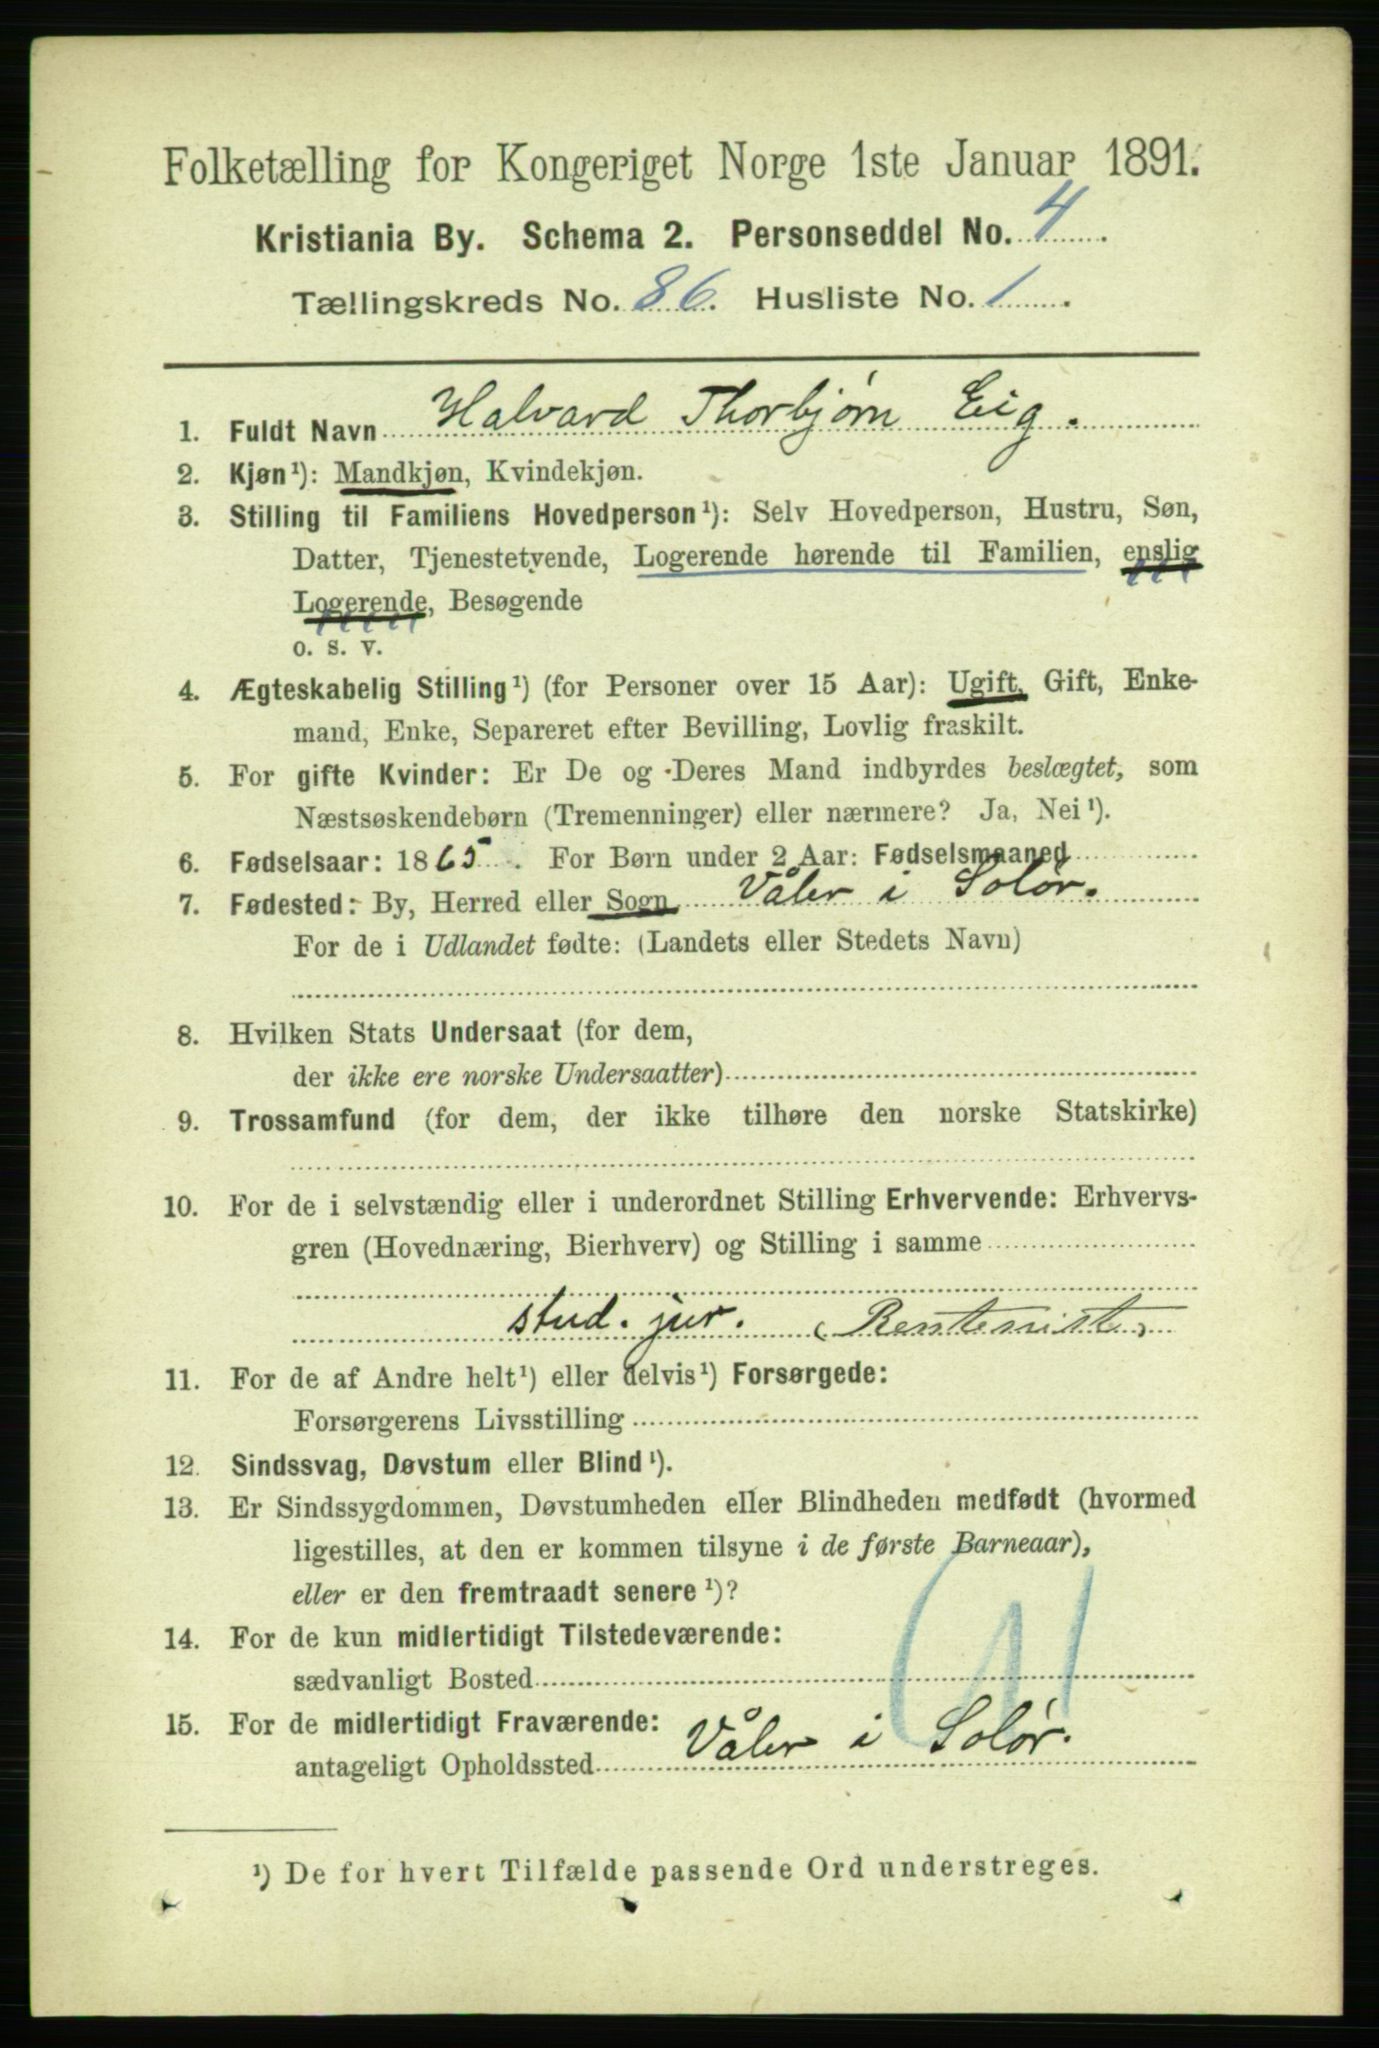 Folketælling for Kongeriget Norge 1ste Januar 1891.
Kristiania By. Schema 2. Personseddel No. 4
Tællingskreds No. 86. Husliste No. 1.
1. Fuldt Navn Halvard Thorbjørn Eig.
2. Kjøn¹): Mandkjøn, Kvindekjøn.
3. Stilling til Familiens Hovedperson¹): Selv Hovedperson, Hustru, Søn,
Datter, Tjenestetyende, Logerende hørende til Familien, enslig
Logerende, Besøgende
o. s. v.
4. Ægteskabelig Stilling¹) (for Personer over 15 Aar): Ugift, Gift, Enke-
mand, Enke, Separeret efter Bevilling, Lovlig fraskilt.
5. For gifte Kvinder: Er De og Deres Mand indbyrdes beslægtet, som
Næstsøskendebørn (Tremenninger) eller nærmere? Ja, Nei¹).
6. Fødselsaar: 1865. For Børn under 2 Aar: Fødselsmaaned
7. Fødested: By, Herred eller Sogn Våler i Solør.
For de i Udlandet fødte: (Landets eller Stedets Navn)
8. Hvilken Stats Undersaat (for dem,
der ikke ere norske Undersaatter)
9. Trossamfund (for dem, der ikke tilhøre den norske Statskirke)
10. For de i selvstændig eller i underordnet Stilling Erhvervende: Erhvervs-
gren (Hovednæring, Bierhverv) og Stilling i samme
stud. jur. (Rentenist)
11. For de af Andre helt¹) eller delvis¹) Forsørgede:
Forsørgerens Livsstilling
12. Sindssvag, Døvstum eller Blind¹).
13. Er Sindssygdommen, Døvstumheden eller Blindheden medfødt (hvormed
ligestilles, at den er kommen tilsyne i de første Barneaar),
eller er den fremtraadt senere¹)?
14. For de kun midlertidigt Tilstedeværende:
sædvanligt Bosted
15. For de midlertidigt Fraværende:
antageligt Opholdssted Våler i Solør.
¹) De for hvert Tilfælde passende Ord understreges.